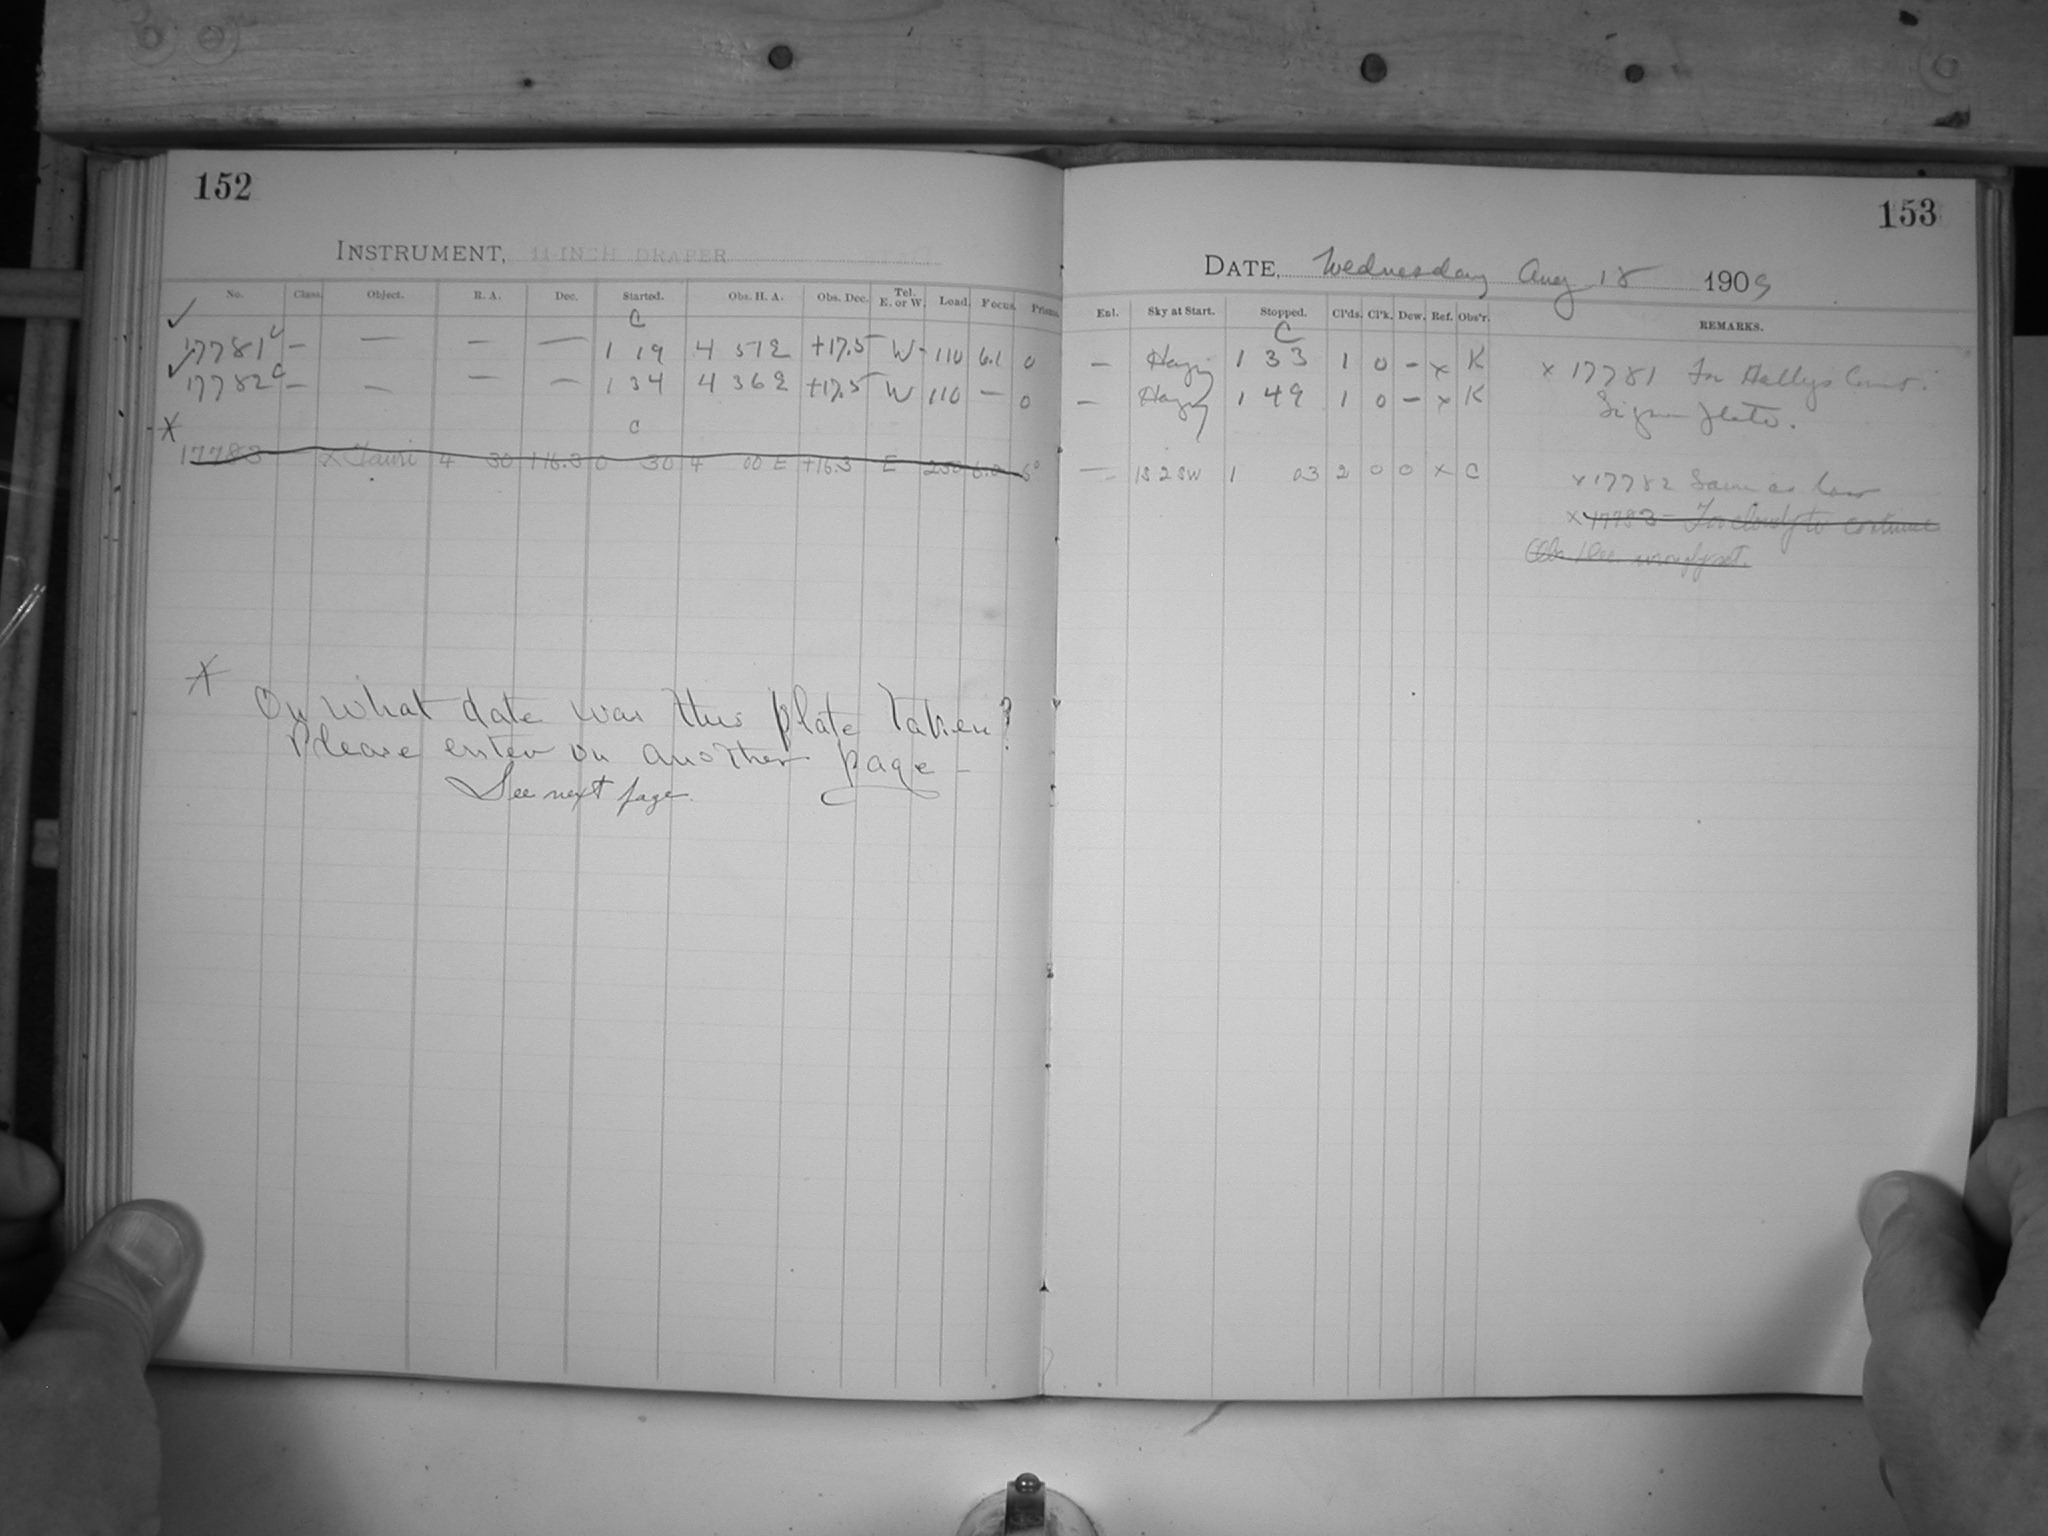 152
INSTRUMENT, 11-INCH DRAPER
No. Class. Object. R. A. Dec. Started. Obs. H. A. Obs. Dec. Tel. E. or W. Load. Focus. Prisms.
C
17781 c — — — — 1 19 4 51 2 +17.5 W 110 6.1 0
17782 c — — — — 1 34 4 36 2 +17.5 W 110 — 0
X C
17783 Tauri 4 30 +16.3 0 30 4 00 E +16.3 E 250 6.0
X
On what date was this plate taken?
Please enter on another page —
See next page.
153
DATE, Wednesday Aug 18 1909
Enl. Sky at Start. Stopped. Cl'ds. Cl'k. Dew. Ref. Obs'r. REMARKS.
C
— Hazy 1 33 1 0 — x K x 17781 For Hallys Comet.
— Hazy 1 49 1 0 — x K Sigma plate.
— 1 S 2 SW 1 03 2 0 0 x C x 17782 Same as
x 17783 — Too cloudy to continue
Obs Dec. wrongly set.